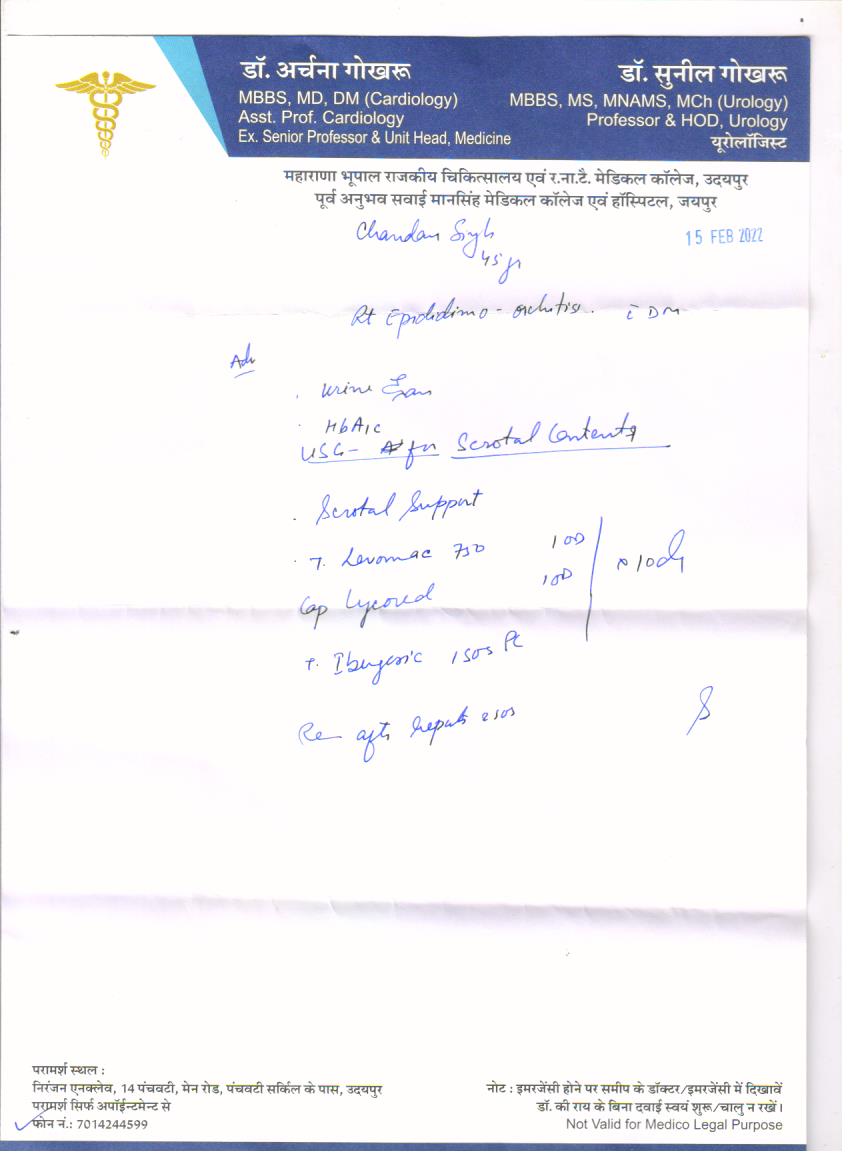 डॉ. अर्चना गोखरू
MBBS, MD, DM (Cardiology)
Asst. Prof. Cardiology
Ex. Senior Professor & Unit Head, Medicine
डॉ. सुनील गोखरू
MBBS, MS, MNAMS, MCh (Urology)
Professor & HOD, Urology
यूरोलॉजिस्ट
महाराणा भूपाल राजकीय चिकित्सालय एवं र.ना.टै. मेडिकल कॉलेज, उदयपुर
पूर्व अनुभव सवाई मानसिंह मेडिकल कॉलेज एवं हॉस्पिटल, जयपुर
Chandan Singh
15 FEB 2022
45 yr
Rt Epididimo-orchitis. c̄ DM
Adv
Urine Exam
HbA1c
USG - for Scrotal Contents
Scrotal Support
T. Levomac 750 1 OD
Cap Lycored 1 OD
T. Ibugesic 1 SOS
after
परामर्श स्थल :
निरंजन एनक्लेव, 14 पंचवटी, मेन रोड, पंचवटी सर्किल के पास, उदयपुर
परामर्श सिर्फ अपॉईन्टमेन्ट से
फोन नं.: 7014244599
नोट : इमरजेंसी होने पर समीप के डॉक्टर/इमरजेंसी में दिखावें
डॉ. की राय के बिना दवाई स्वयं शुरू/चालु न रखें।
Not Valid for Medico Legal Purpose